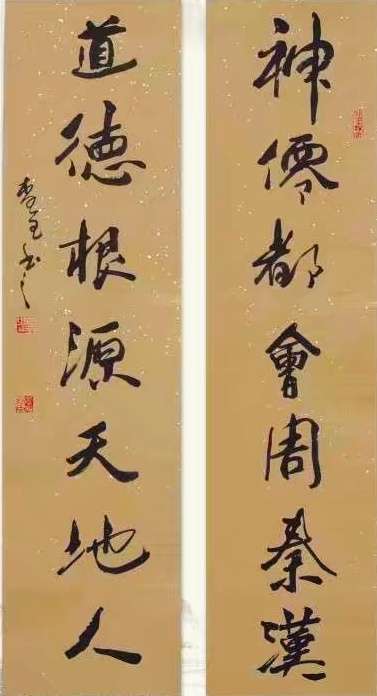 神僊都會周秦漢
道德根源天地人